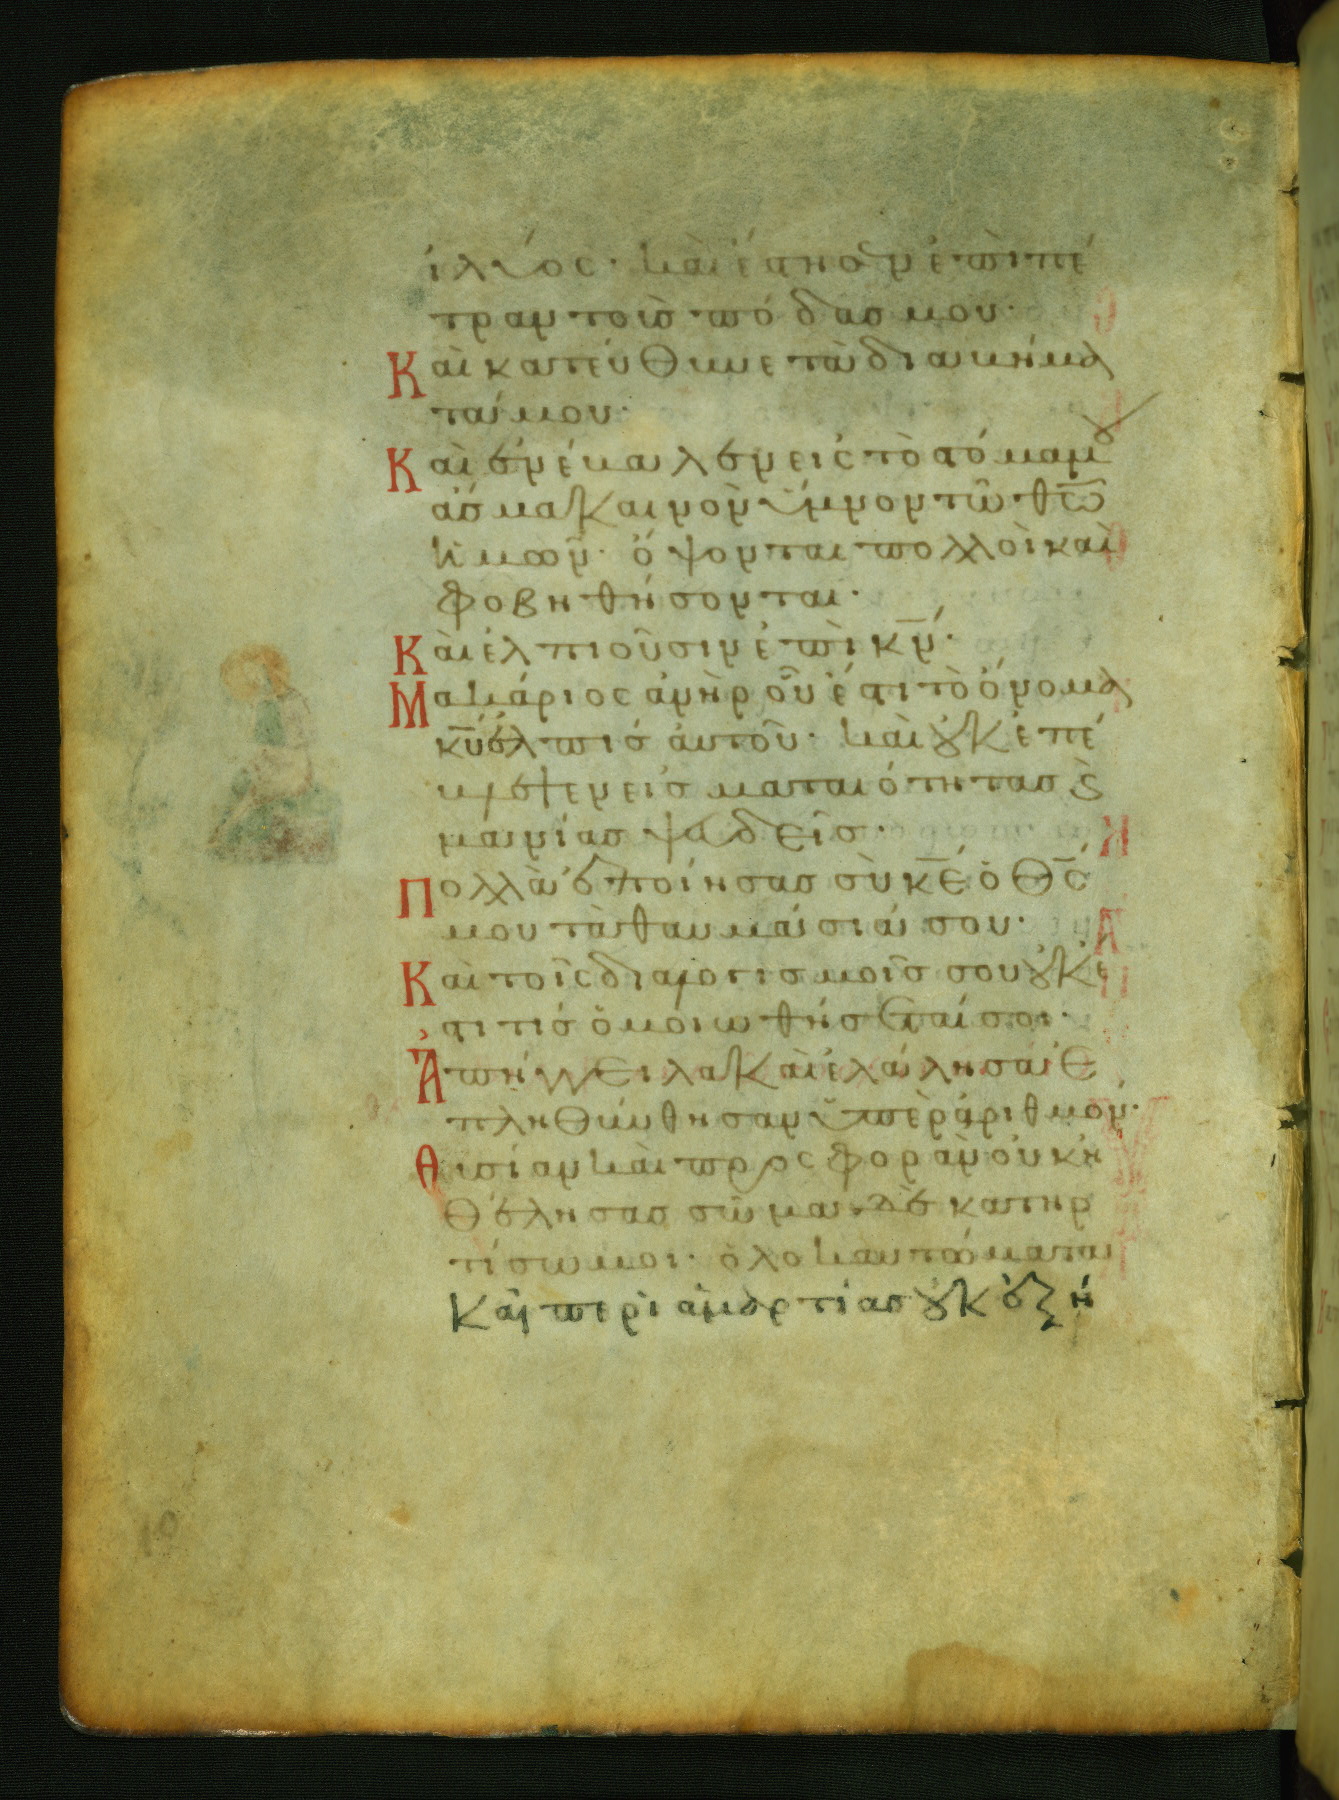 ιλύος· καὶ ἔστησεν ἐπὶ πέ
τραν τοὺς πόδας μου·
Καὶ κατεύθυνε τὰ διαβήμα
τά μου·
Καὶ ἐνέβαλεν εἰς τὸ στόμα μου
ἄσμα καινὸν ὕμνον τῶ θ̅ω̅
ἡμῶν· ὄψονται πολλοὶ καὶ
φοβηθήσονται·
Καὶ ἐλπιοῦσιν ἐπὶ κ̅ν̅·
Μακάριος ἀνὴρ οὗ ἐστι τὸ ὄνομα
κ̅υ̅ ἐλπὶς ἀυτοῦ· καὶ οὐκ ἐπέ
βλεψεν εἰς ματαιότητας καὶ
μανίας ψευδεῖς·
Πολλὰ ἐποίησας σὺ κ̅ε̅ ὁ θ̅ς̅
μου τὰ θαυμάσιά σου·
Καὶ τοῖς διαλογισμοῖς σου οὐκ έ
στι τίς ὁμοιωθήσεταί σοι·
Ἀπήγγειλα καὶ ἐλάλησα ἐ
πληθύνθησαν ὑπὲρ ἀριθμόν·
Θυσίαν καὶ προσφορὰν οὐκ ἠ
θέλησας σῶμα δὲ κατηρ
τίσω μοι· ὁλοκαυτώματα
Καὶ περὶ ἁμαρτίας οὐκ ἐζή
10